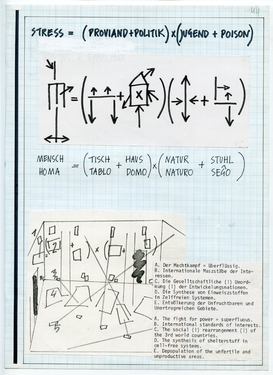 STRESS = (PROVIAND+POLITIK)x(JUGEND + POISON)
MENSCH = (TISCH + HAUS)x(NATUR + STUHL)
HOMA TABLO DOMO NATURO SEĜO
A. Der Machtkampf = überflüssig.
B. Internationale Masstäbe der Inte-
ressen.
C. Die Gesellschaftliche (!) Unord-
nung (!) der Entwicklungsnationen.
D. Die Synthese von Eiweisstoffen
in Zellfreien Systemen.
E. Entvölkerung der Unfruchtbaren und
Unertragreichen Gebiete.
A. The fight for power = superfluous.
B. International standards of interests.
C. The social (!) rearrangement (!) of
the 3rd world countries.
D. The synthesis of shelterstuff in
cell-free systems.
E. Depopulation of the unfertile and
unproductive areas.